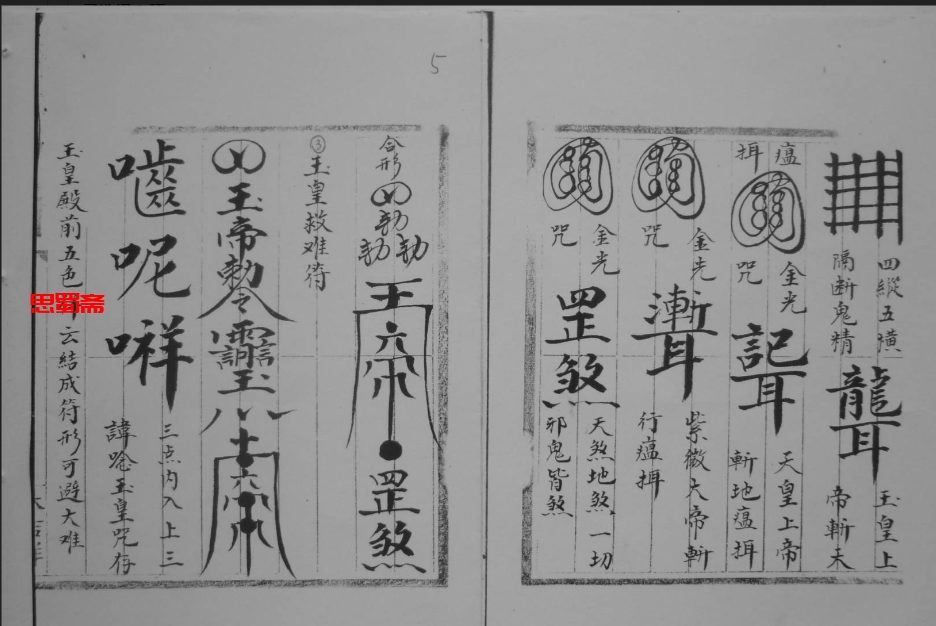 四縱五横
隔断鬼精
玉皇上
帝斬未
瘟
㨒
金光
咒
天皇上帝
斬地瘟㨒
金光
咒
紫微大帝斬
行瘟㨒
金光
咒
罡煞
天煞地煞一切
邪鬼皆煞
5
合形
勅勅勅
罡煞
③玉皇救难符
玉帝勅令
噛呢㖒
三点内入上三
諱唸玉皇咒存
玉皇殿前五色
云結成符形可避大难
思蜀斋